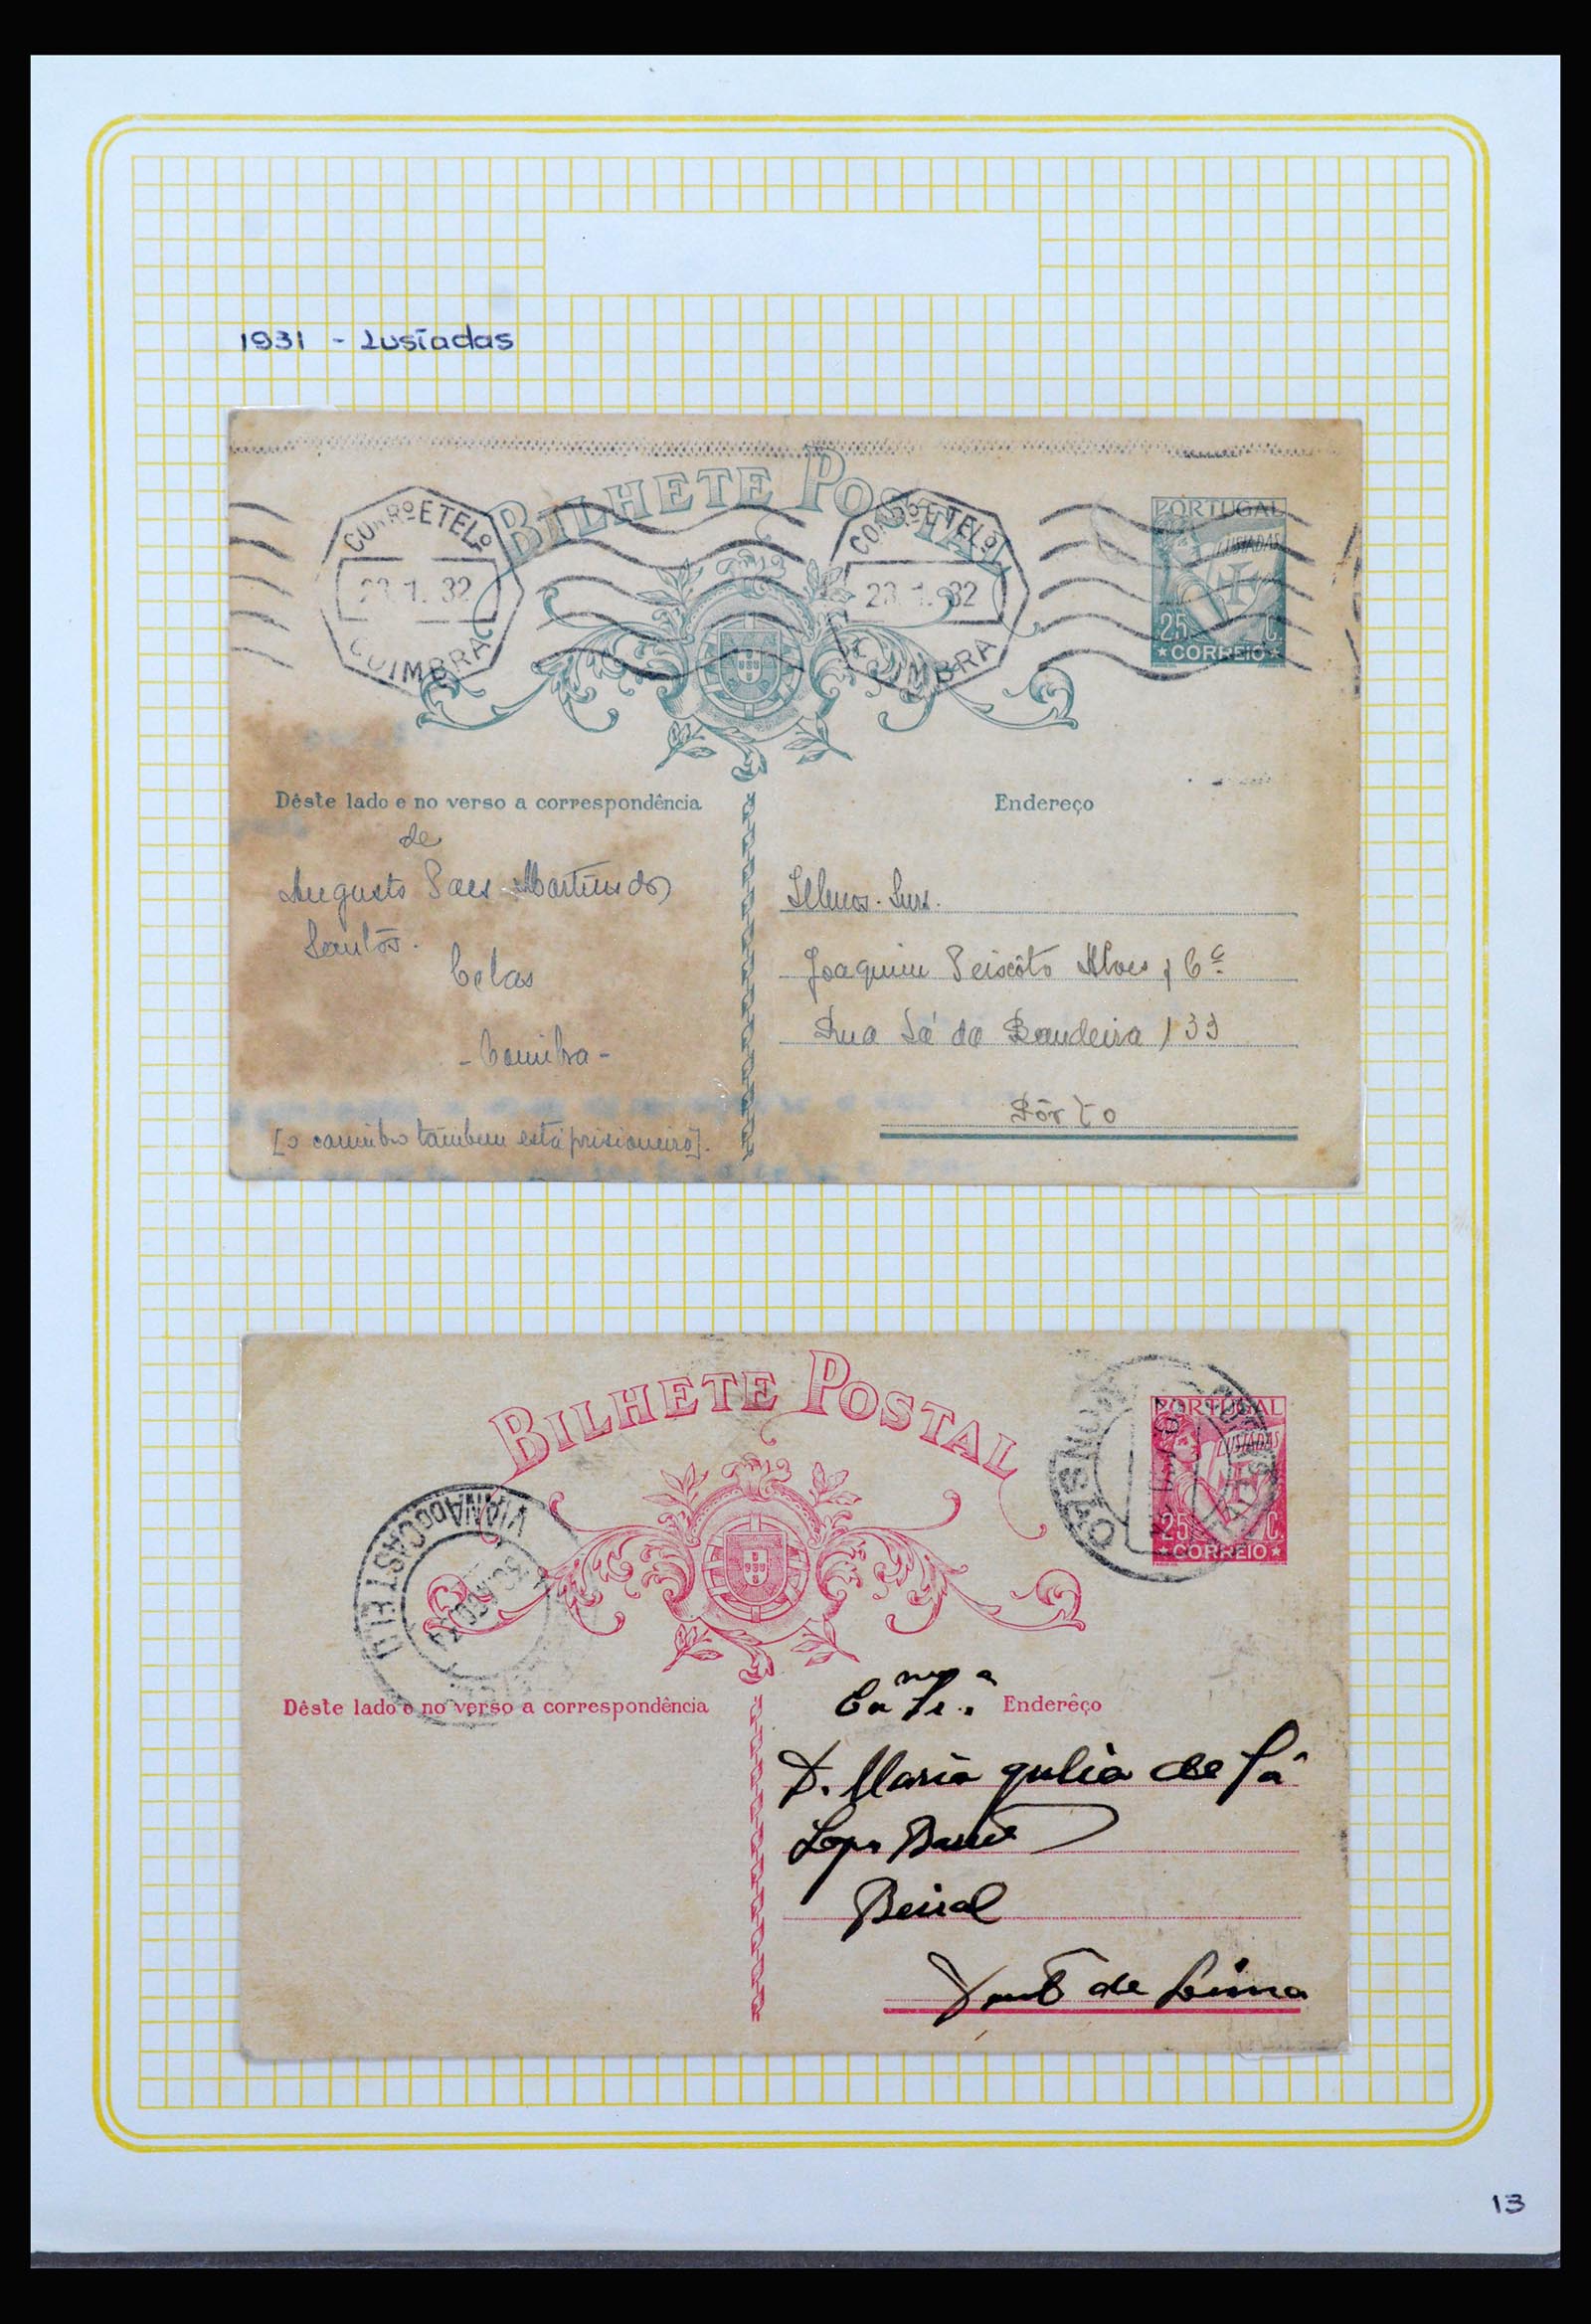 1931 - Lusíadas
BILHETE POSTAL
CORRO E TELO
23.1.32
COIMBRA
CORRO E TELO
23.1.32
COIMBRA
PORTUGAL
LUSIADAS
25 C.
*CORREIO*
Dêste lado e no verso a correspondência
Endereço
de
Augusto Paes Martins dos
Santos.
Celas
- Coimbra -
[o carimbo tambem está prisioneiro].
Illmos. Snrs.
Joaquim Peixôto Alves & Cª
Rua Sá da Bandeira 133
Pôrto
BILHETE POSTAL
PORTUGAL
LUSIADAS
25 C.
*CORREIO*
VIANA DO CASTELO
Dêste lado e no verso a correspondência
Enderêço
D. Maria Julia de Sá
Beiral
de Lima
13